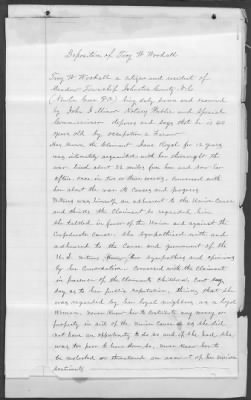 Deposition of Troy W Woodall
Troy W Woodall a citizen and resident of
Meadow Township Johnston County N.C.
being duly sworn and examined
by John Notary Public and Special
Commissioner deposes and says that he is 60
years old by occupation a Farmer
Has known the Claimant Jane Royal for 12 years
was intimately acquainted with her throughout the
war lived about 2½ miles from her and saw her
often, once in two or three weeks, conversed with
her about the war its causes and progress
Witness was himself an adherent to the Union Cause
and thinks the Claimant so regarded him
She talked in favor of the Union and against the
Confederate cause. She sympathized with and
adhered to the Cause and government of the
U.S. Witness knew her sympathies and opinions
by her conversation. Conversed with the Claimant
in presence of the Claimants children,
day as to her public reputation, thinks that she
was regarded by her loyal neighbors as a loyal
Woman. never knew her to contribute any money or
property in aid of the Union Cause as she did
not have an opportunity to do so and if she had she
was too poor to have done so, never knew her to
be molested or threatened on account of her Union
sentiments